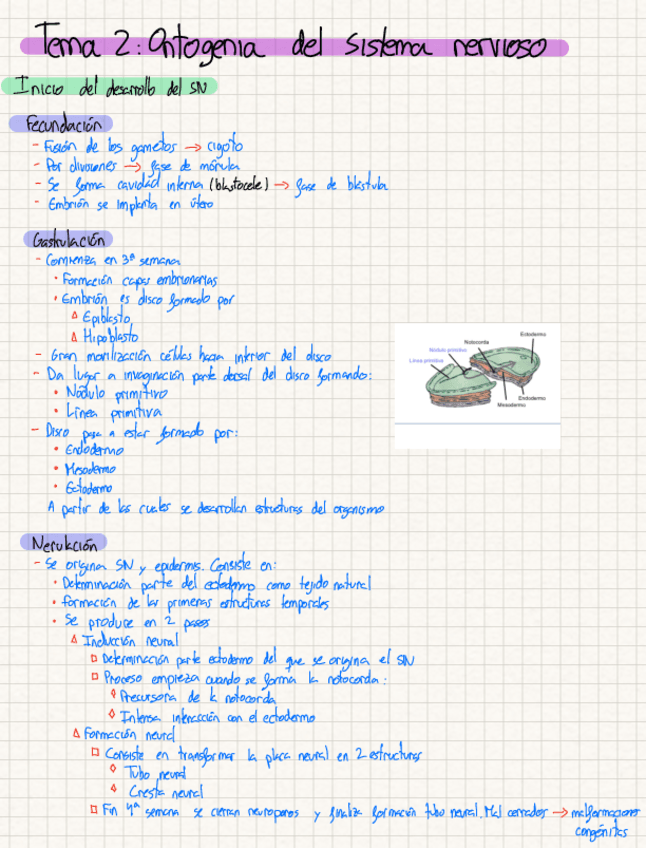 Tema 2: Ontogenia del sistema nervioso
Inicio del desarrollo del SN
Fecundación
- Fusión de los gametos → cigoto
- Por divisiones → fase de mórula
- Se forma cavidad interna (blastocele) → fase de blástula
- Embrión se implanta en útero
Gastrulación
- Comienza en 3ª semana
· Formación capas embrionarias
· Embrión es disco formado por
△ Epiblasto
△ Hipoblasto
- Gran movilización células hacia interior del disco
- Da lugar a invaginación parte dorsal del disco formando:
· Nódulo primitivo
· Línea primitiva
- Disco pasa a estar formado por:
· Endodermo
· Mesodermo
· Ectodermo
A partir de las cuales se desarrollan estructuras del organismo
Ectodermo
Notocorda
Nódulo primitivo
Línea primitiva
Endodermo
Mesodermo
Nerulación
- Se origina SN y epidermis. Consiste en:
· Determinación parte del ectodermo como tejido natural
· Formación de las primeras estructuras temporales
· Se produce en 2 pasos
△ Inducción neural
□ Determinación parte ectodermo del que se origina el SN
□ Proceso empieza cuando se forma la notocorda:
◇ Precursora de la notocorda
◇ Intensa interacción con el ectodermo
△ Formación neural
□ Consiste en transformar la placa neural en 2 estructuras
◇ Tubo neural
◇ Cresta neural
□ Fin 4ª semana se cierran neuroporos y finaliza formación tubo neural. Mal cerrados → malformaciones
congénitas